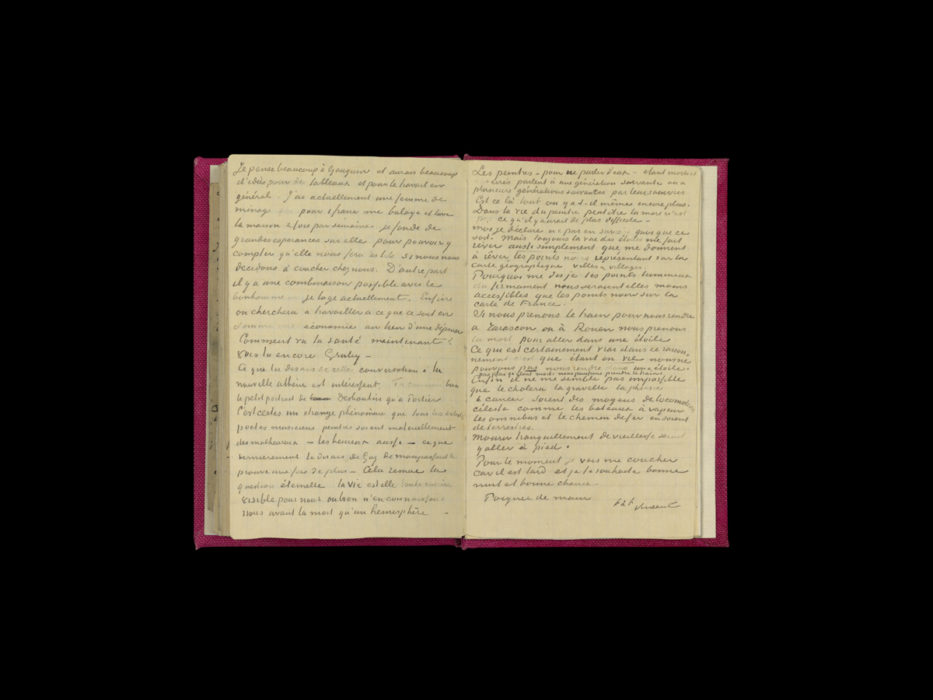 Je pense beaucoup à Gauguin et aurais beaucoup
d'idées pour des tableaux et pour le travail en
général. J'ai actuellement une femme de
ménage pour 1 franc me balaye et lave
la maison 2 fois par semaine je fonde de
grandes espérances sur elle pour pouvoir y
compter qu'elle nous fera les lits si nous nous
decidons à coucher chez nous. D'autre part
il y a une combinaison possible avec le
bonhomme où je loge actuellement. Enfin
on cherchera à travailler a ce que ce soit en
somme une économie au lieu d'une dépense
Comment va ta santé maintenant
Vois tu encore Gruby –
Ce que tu disais de cette conversation à la
nouvelle athène est intéressant. Tu connais bien
le petit portrait de Desboutin qu'a Portier
C'est certes un etrange phénomène que tous les artistes
poetes musiciens peintres soient matériellement
des malheureux – les heureux aussi – ce que
dernierement tu disais de Guy de Maupassant le
prouve une fois de plus – Cela remue la
question éternelle la vie est elle toute entière
visible pour nous ou bien n'en connaissons
nous avant la mort qu'un hemisphère –
Les peintres – pour ne parler d'eux – étant morts et
enterrés parlent à une génération suivante ou à
plusieurs générations suivantes par leurs oeuvres
Est ce là tout ou y a t-il même encore plus.
Dans la vie du peintre peut être la mort n'est
pas ce qu'il y aurait de plus difficile –
moi je déclare ne pas en savoir quoi que ce
soit. Mais toujours la vue des étoiles me fait
rêver aussi simplement que me donnent
à rêver les points noirs représentant sur la
carte géographique villes – villages
Pourquoi me dis je les points lumineux
du firmament nous seraient elles moins
accessibles que les points noirs sur la
carte de France.
Si nous prenons le train pour nous rendre
à Tarascon ou à Rouen nous prenons
la mort pour aller dans une étoile
Ce qui est certainement vrai dans ce raison-
nement c'est que étant en vie nous ne
pouvons pas nous rendre dans une étoile.
pas plus qu'étant morts nous puissions prendre le train.
Enfin il ne me semble pas impossible
que le cholera la gravelle la phtisie
le cancer soient des moyens de locomotion
céleste comme les bateaux à vapeur
les omnibus et le chemin de fer en soient
de terrestres.
Mourir tranquillement de vieillesse serait
y aller à pied.
Pour le moment je vais me coucher
car il est tard et je te souhaite bonne
nuit et bonne chance
Poignée de main
t. à t. Vincent